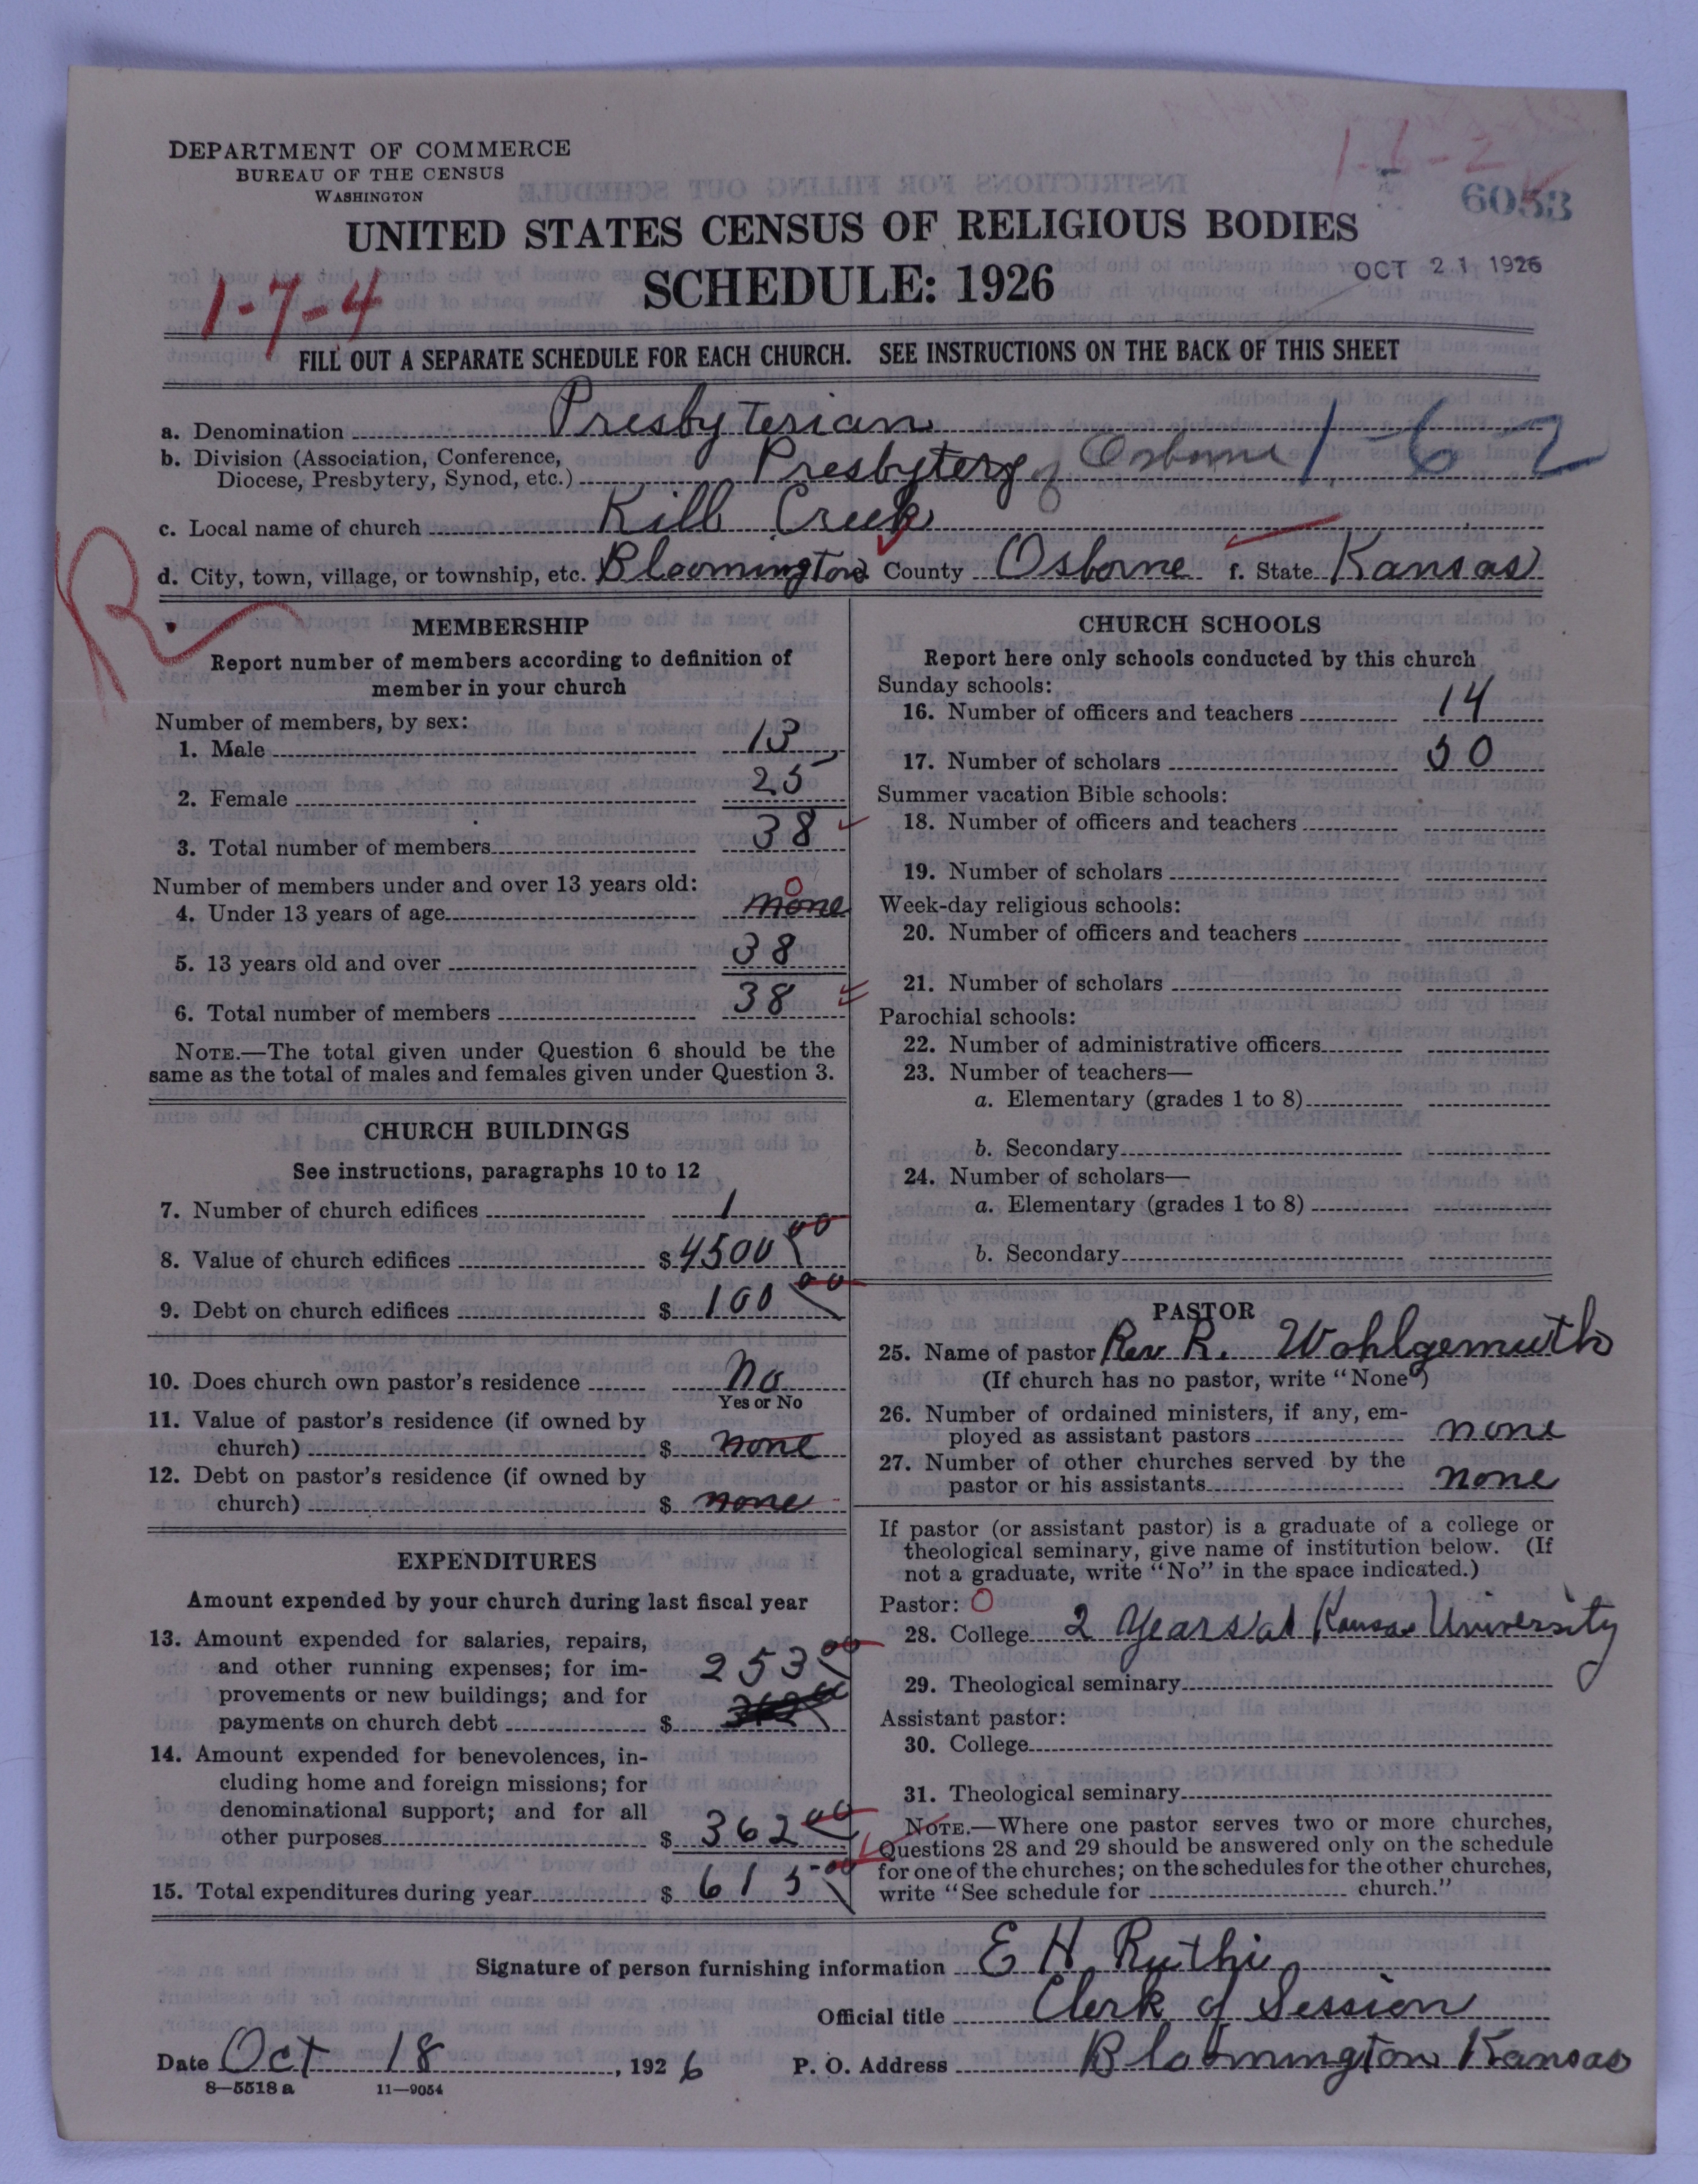 1-6-2
6053
DEPARTMENT OF COMMERCE
BUREAU OF THE CENSUS
WASHINGTON
UNITED STATES CENSUS OF RELIGIOUS BODIES
SCHEDULE: 1926
OCT 21 1926
1-7-4
FILL OUT A SEPARATE SCHEDULE FOR EACH CHURCH. SEE INSTRUCTIONS ON THE BACK OF THIS SHEET
a. Denomination Presbyterian
b. Division (Association, Conference,
Diocese, Presbytery, Synod, etc.) Presbytery of Osborne 1-6-2
c. Local name of church Kill Creek
d. City, town, village, or township, etc. Bloomington County Osborne f. State Kansas
R
MEMBERSHIP
Report number of members according to definition of
member in your church
Number of members, by sex:
1. Male 13
2. Female 25
3. Total number of members 38
Number of members under and over 13 years old:
0
4. Under 13 years of age none
5. 13 years old and over 38
6. Total number of members 38
NOTE.—The total given under Question 6 should be the
same as the total of males and females given under Question 3.
CHURCH BUILDINGS
See instructions, paragraphs 10 to 12
7. Number of church edifices 1
8. Value of church edifices $ 4500 00
9. Debt on church edifices $ 100 00
10. Does church own pastor's residence No
Yes or No
11. Value of pastor's residence (if owned by
church) $ none
12. Debt on pastor's residence (if owned by
church) $ none
EXPENDITURES
Amount expended by your church during last fiscal year
13. Amount expended for salaries, repairs,
and other running expenses; for im-
provements or new buildings; and for
payments on church debt $ 253 00
14. Amount expended for benevolences, in-
cluding home and foreign missions; for
denominational support; and for all
other purposes $ 362 00
15. Total expenditures during year $ 615 00
CHURCH SCHOOLS
Report here only schools conducted by this church
Sunday schools:
16. Number of officers and teachers 14
17. Number of scholars 50
Summer vacation Bible schools:
18. Number of officers and teachers
19. Number of scholars
Week-day religious schools:
20. Number of officers and teachers
21. Number of scholars
Parochial schools:
22. Number of administrative officers
23. Number of teachers—
a. Elementary (grades 1 to 8)
b. Secondary
24. Number of scholars—
a. Elementary (grades 1 to 8)
b. Secondary
PASTOR
25. Name of pastor Rev R. Wohlgemuth
(If church has no pastor, write "None")
26. Number of ordained ministers, if any, em-
ployed as assistant pastors none
27. Number of other churches served by the
pastor or his assistants none
If pastor (or assistant pastor) is a graduate of a college or
theological seminary, give name of institution below. (If
not a graduate, write "No" in the space indicated.)
Pastor: O
28. College 2 Years at Kansas University
29. Theological seminary
Assistant pastor:
30. College
31. Theological seminary
NOTE.—Where one pastor serves two or more churches,
Questions 28 and 29 should be answered only on the schedule
for one of the churches; on the schedules for the other churches,
write "See schedule for church."
Signature of person furnishing information E H Ruthi
Official title Clerk of Session
Date Oct 18, 1926 P. O. Address Bloomington Kansas
8-5518 a 11-9054